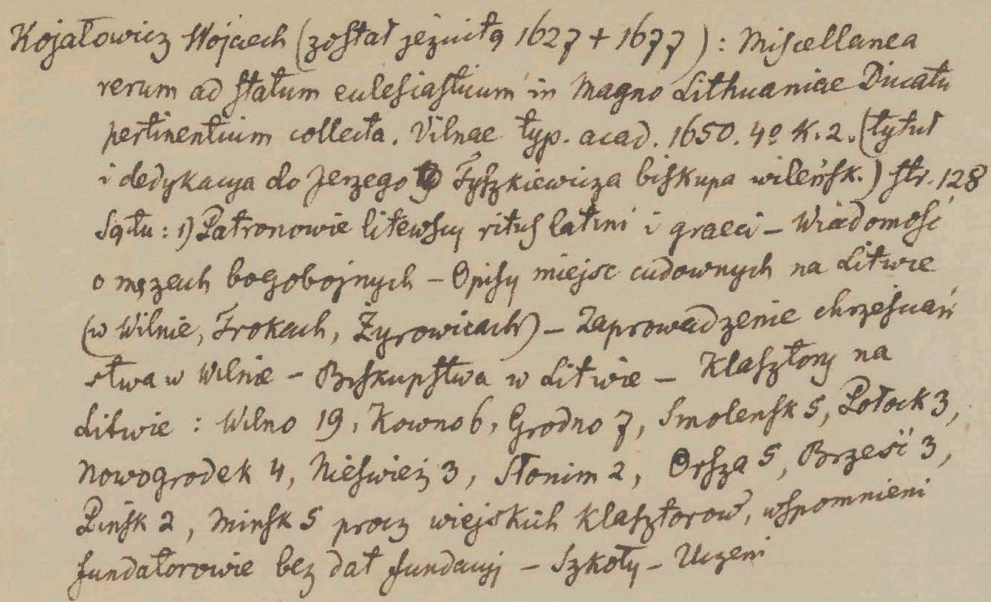 Kojałowicz Wojciech (został jezuitą 1627 + 1677) : Miscellanea
rerum ad statum eulesiasticum in Magno Lithuaniae Ducatu
pertinentium collecta. Vilnae typ. acad. 1650. 4º K. 2. (tytuł
i dedykacya do Jerzego Tyszkiewicza biskupa wileńsk.) str. 128
Są tu : 1) Patronowie litewscy ritus latini i graeci – Wiadomość
o męzach bogobojnych – Opisy miejsc cudownych na Litwie
(w Wilnie, Trokach, Żyrowicach) – Zaprowadzenie chrześciań
stwa w Wilnie – Biskupstwa w Litwie – Klasztory na
Litwie : Wilno 19, Kowno 6, Grodno 7, Smoleńsk 5, Połock 3,
Nowogrodek 4, Nieśwież 3, Słonim 2, Orsza 5, Brześć 3,
Pińsk 2, Mińsk 5 procz wiejskich klasztorow, wspomnieni
fundatorowie bez dat fundacyj – Szkoły – Uczeni